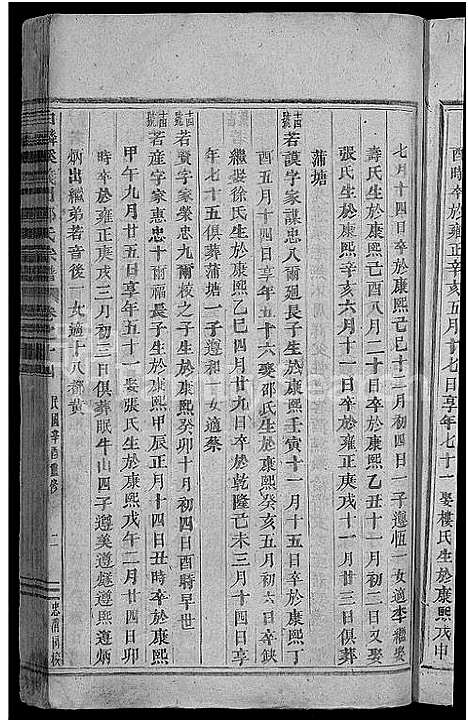 酉時卒於雍正辛亥五月廿七日享年七十一娶樓氏生於康熙戊申
七月十四日卒於康熙己巳十二月初四日一子遵恆一女適李繼娶
壽氏生於康熙己酉八月二十日卒於康熙乙丑十一月初二日又娶
張氏生於康熙辛亥六月十一日卒於雍正庚戌十一月廿三日俱葬
蒲塘
若謨字家謀忠八爾廻長子生於康熙壬寅十一月十五日卒於康熙丁
酉五月十四日享年五十六娶邵氏生於康熙癸亥五月初六日卒缺
繼娶徐氏生於康熙乙巳四月廿九日卒於乾隆己未三月十四日享
年七十五俱葬蒲塘一子遵和一女適蔡
若賓字家榮忠九爾校之子生於康熙癸卯十月初四日酉時早世
若産字家惠忠十爾福長子生於康熙甲辰正月十四日丑時卒於康熙
甲午九月廿五日享年五十一娶張氏生於康熙戊午二月廿四日卯
時卒於雍正庚戌三月初三日俱葬眠牛山四子遵美遵懿遵熙遵炳
炳出繼弟若音後一女適十八都黃
氏宗譜
卷之十四
民國辛酉重修
二